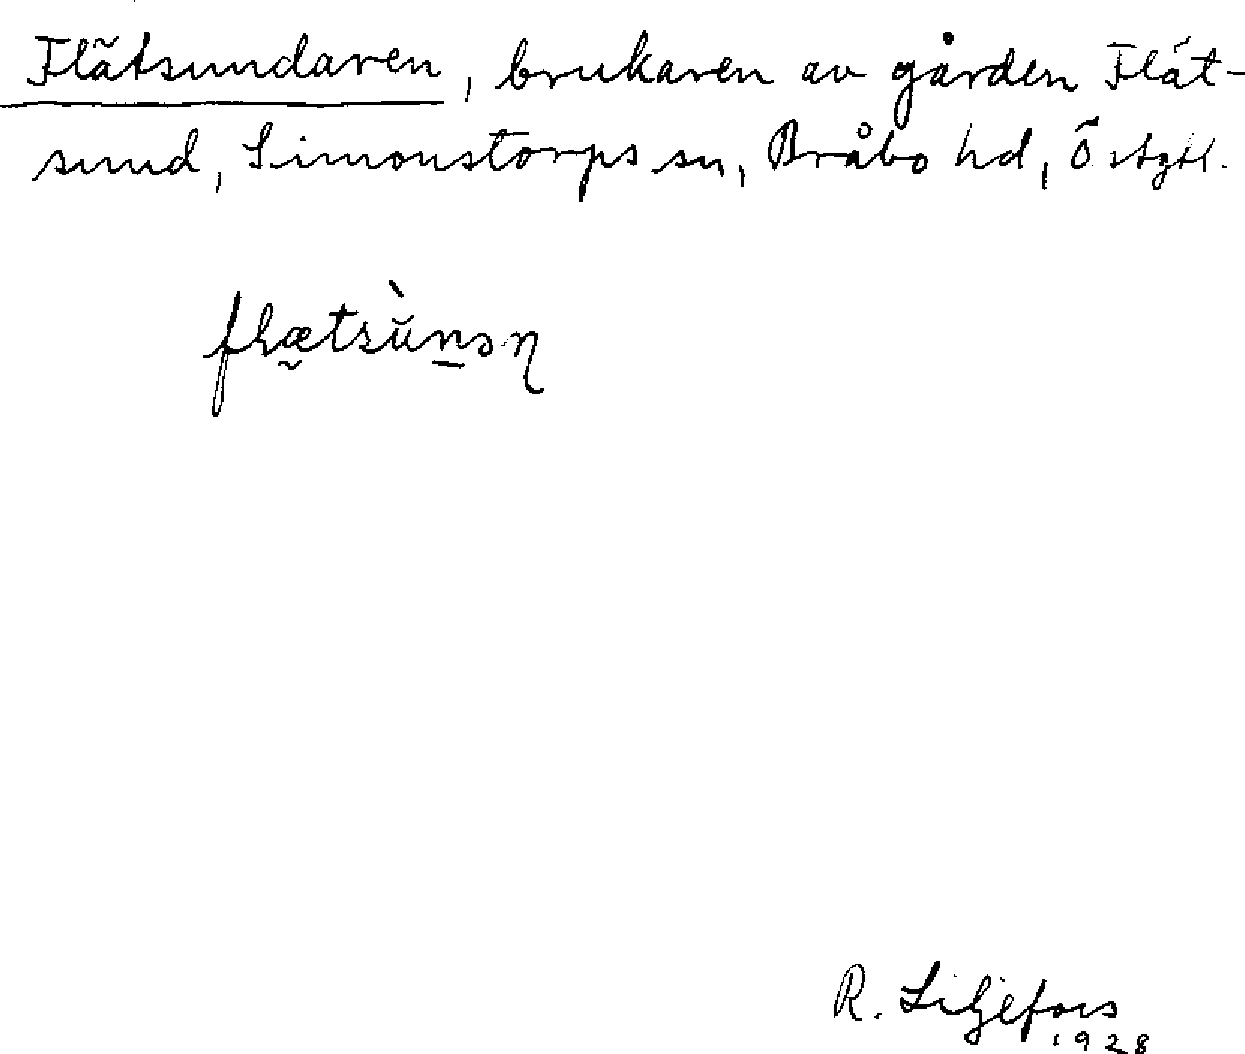 Flätsundaren, brukaren av gården Flät-
sund, Simonstorps sn, Bråbo hd, Östgtl.
R. Liljefors
1928